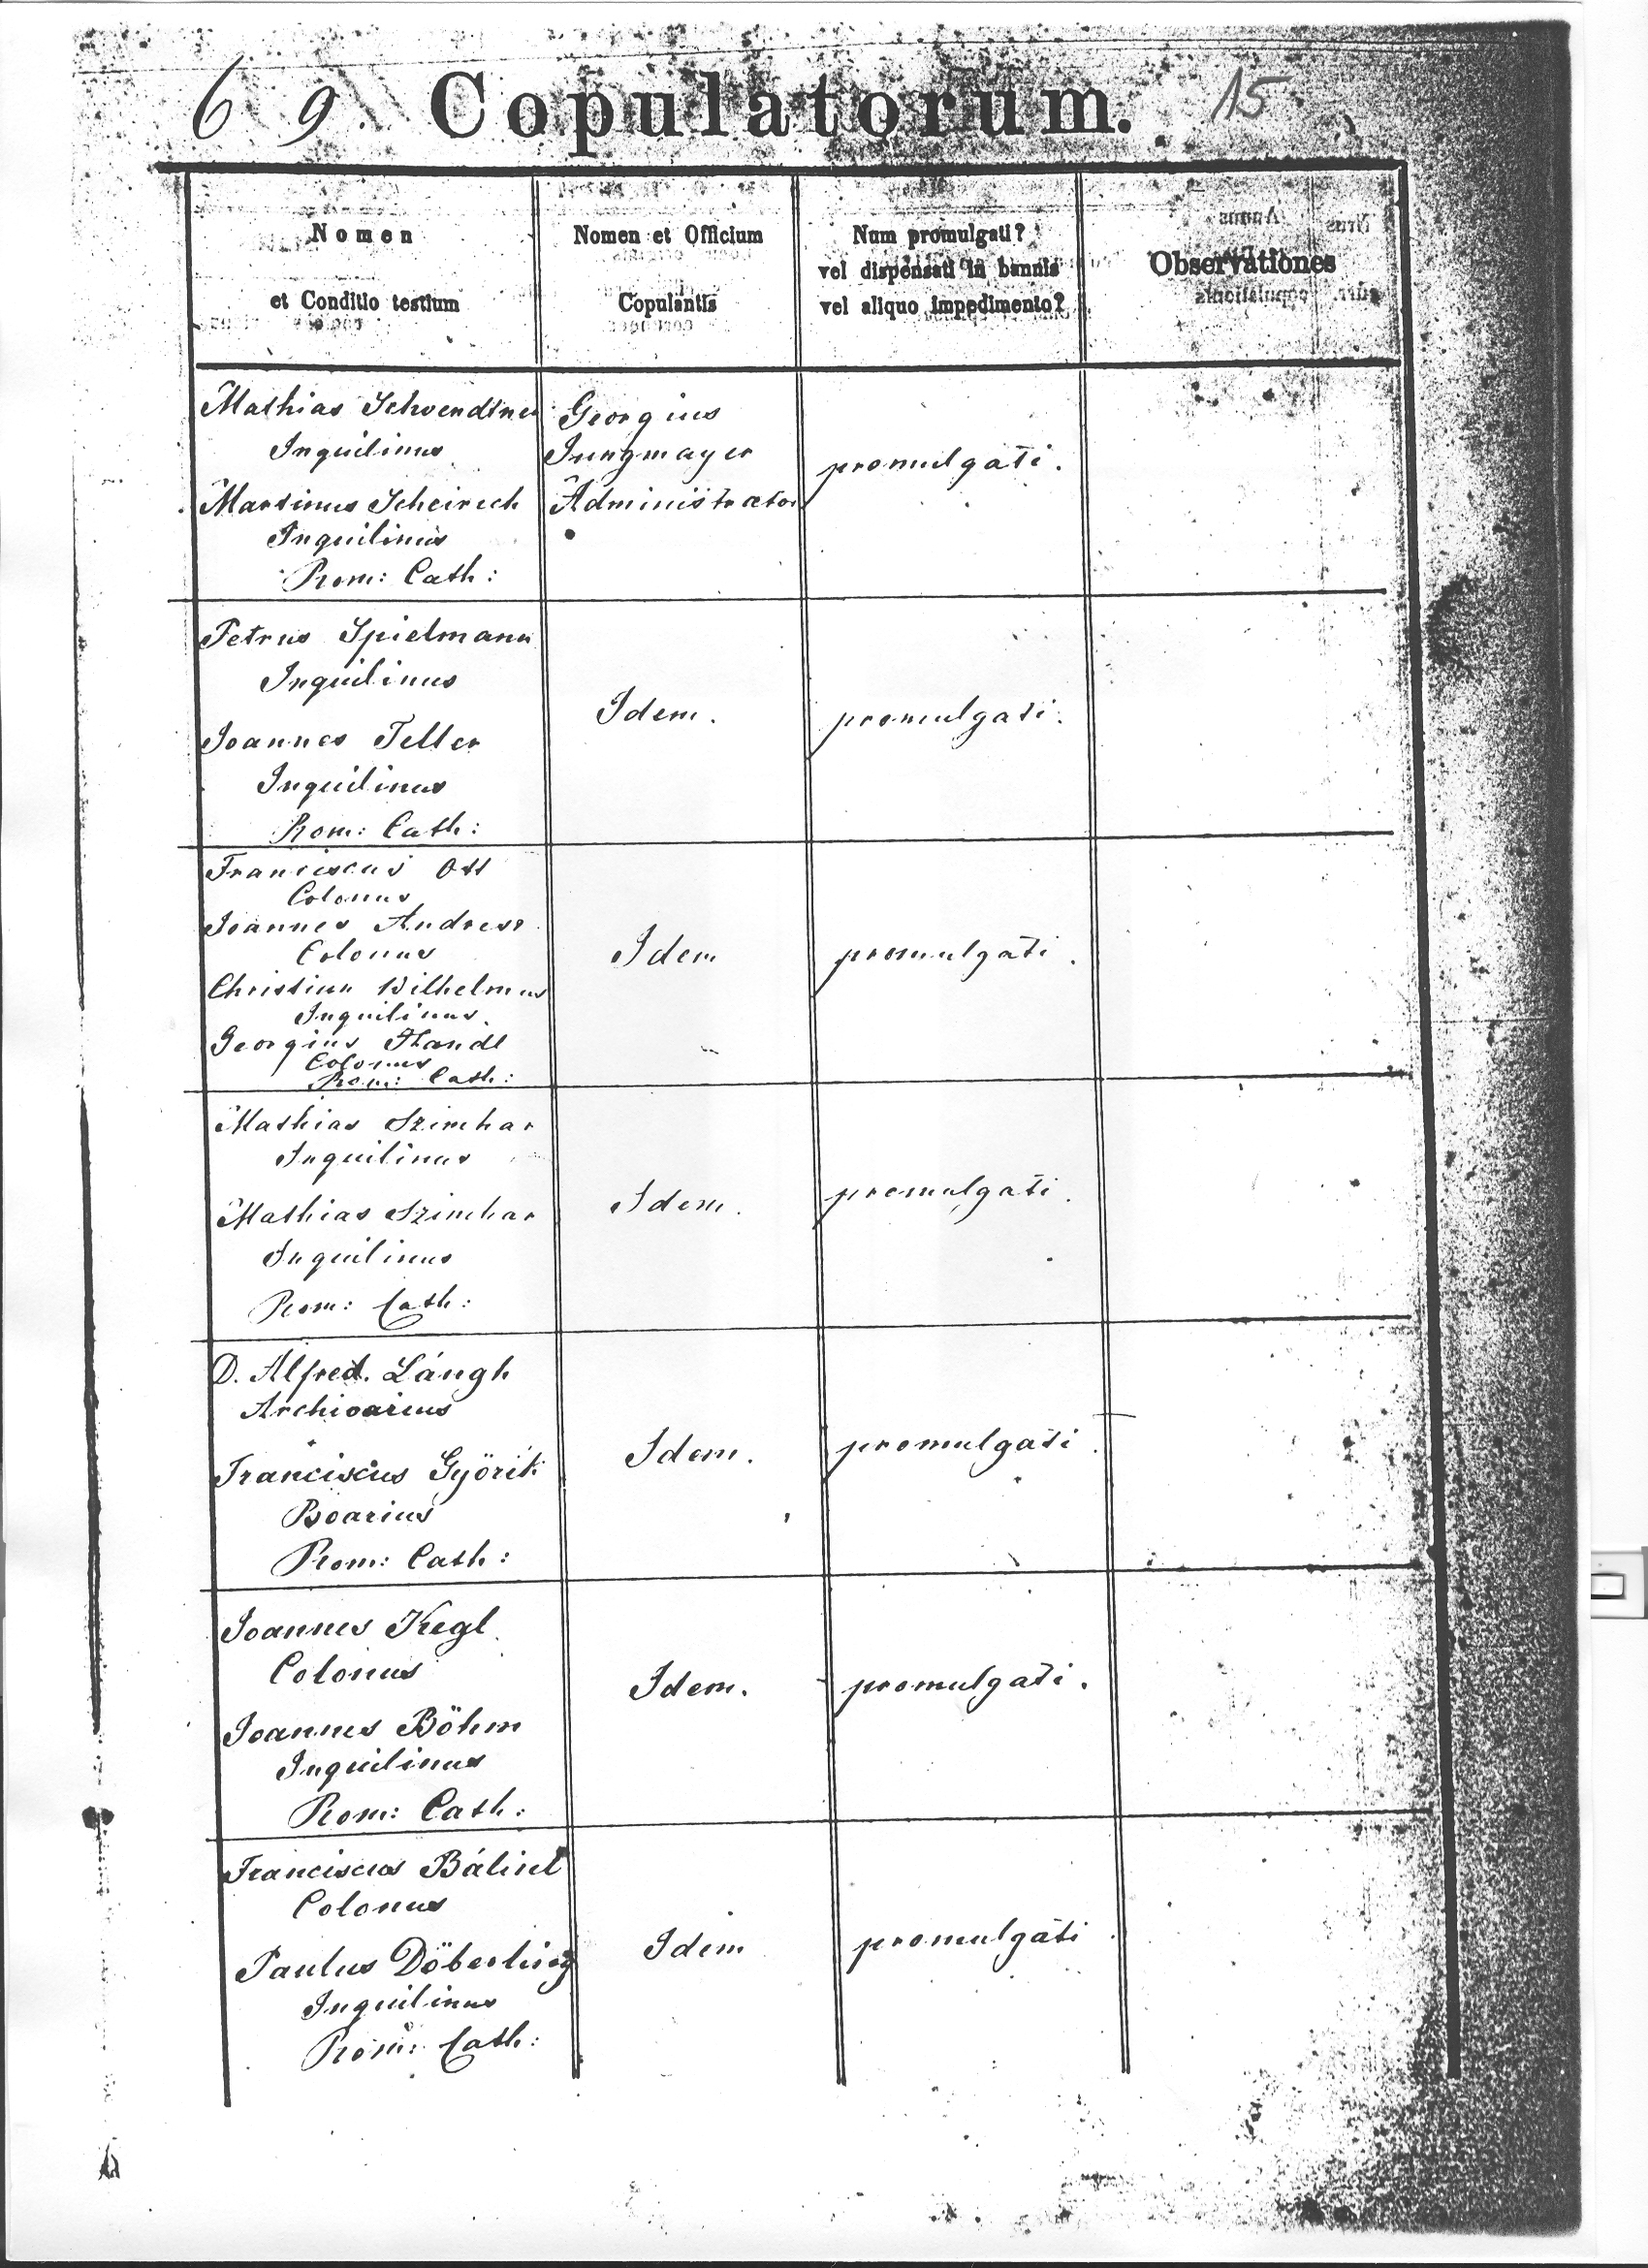 6 9. Copulatorum. 15
Nomen
et Conditio testium
Nomen et Officium
Copulantis
Num promulgati?
vel dispensati in bannis
vel aliquo impedimento?
Observationes
Mathias Schvendtner
Inquilinus
Martinus Scheirich
Inquilinus
Rom: Cath:
Georgius
Jungmayer
Administrator
promulgati.
Petrus Spielmann
Inquilinus
Joannes Teller
Inquilinus
Rom: Cath:
Idem.
promulgati.
Franciscus Ott
Colonus
Joannes Andress
Colonus
Christian Wilhelmus
Inquilinus.
Georgius Handl
Colonus
Rom: Cath:
Idem
promulgati.
Mathias Szimhar
Inquilinus
Mathias Szimhar
Inquilinus
Rom: Cath:
Idem.
promulgati.
D. Alfred. Lángh
Archivarius
Franciscus Györik
Boarius
Rom: Cath:
Idem.
promulgati.
Joannes Kegl
Colonus
Joannes Böhm
Inquilinus
Rom: Cath:
Idem.
promulgati.
Franciscus Bálint
Colonus
Paulus Döberling
Inquilinus
Rom: Cath:
Idem
promulgati